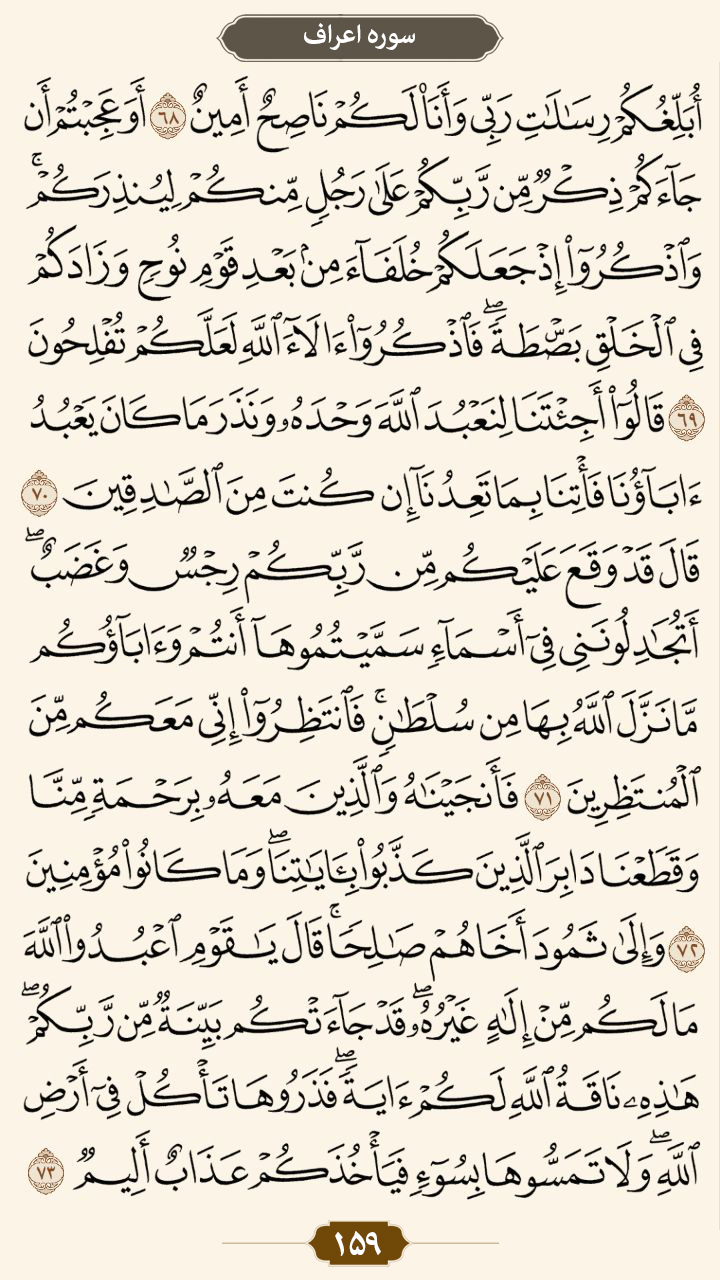 سوره اعراف
أُبَلِّغُكُمْ رِسَٰلَٰتِ رَبِّى وَأَنَا۠ لَكُمْ نَاصِحٌ أَمِينٌ ٦٨ أَوَعَجِبْتُمْ أَن
جَآءَكُمْ ذِكْرٌ مِّن رَّبِّكُمْ عَلَىٰ رَجُلٍ مِّنكُمْ لِيُنذِرَكُمْ ۚ
وَٱذْكُرُوٓا۟ إِذْ جَعَلَكُمْ خُلَفَآءَ مِنۢ بَعْدِ قَوْمِ نُوحٍ وَزَادَكُمْ
فِى ٱلْخَلْقِ بَصْۜطَةً ۖ فَٱذْكُرُوٓا۟ ءَالَآءَ ٱللَّهِ لَعَلَّكُمْ تُفْلِحُونَ
٦٩ قَالُوٓا۟ أَجِئْتَنَا لِنَعْبُدَ ٱللَّهَ وَحْدَهُۥ وَنَذَرَ مَا كَانَ يَعْبُدُ
ءَابَآؤُنَا فَأْتِنَا بِمَا تَعِدُنَآ إِن كُنتَ مِنَ ٱلصَّٰدِقِينَ ٧٠
قَالَ قَدْ وَقَعَ عَلَيْكُم مِّن رَّبِّكُمْ رِجْسٌ وَغَضَبٌ ۖ
أَتُجَٰدِلُونَنِى فِىٓ أَسْمَآءٍ سَمَّيْتُمُوهَآ أَنتُمْ وَءَابَآؤُكُم
مَّا نَزَّلَ ٱللَّهُ بِهَا مِن سُلْطَٰنٍ ۚ فَٱنتَظِرُوٓا۟ إِنِّى مَعَكُم مِّنَ
ٱلْمُنتَظِرِينَ ٧١ فَأَنجَيْنَٰهُ وَٱلَّذِينَ مَعَهُۥ بِرَحْمَةٍ مِّنَّا
وَقَطَعْنَا دَابِرَ ٱلَّذِينَ كَذَّبُوا۟ بِـَٔايَٰتِنَا ۖ وَمَا كَانُوا۟ مُؤْمِنِينَ
٧٢ وَإِلَىٰ ثَمُودَ أَخَاهُمْ صَٰلِحًا ۚ قَالَ يَٰقَوْمِ ٱعْبُدُوا۟ ٱللَّهَ
مَا لَكُم مِّنْ إِلَٰهٍ غَيْرُهُۥ ۖ قَدْ جَآءَتْكُم بَيِّنَةٌ مِّن رَّبِّكُمْ ۖ
هَٰذِهِۦ نَاقَةُ ٱللَّهِ لَكُمْ ءَايَةً ۖ فَذَرُوهَا تَأْكُلْ فِىٓ أَرْضِ
ٱللَّهِ ۖ وَلَا تَمَسُّوهَا بِسُوٓءٍ فَيَأْخُذَكُمْ عَذَابٌ أَلِيمٌ ٧٣
۱۵۹